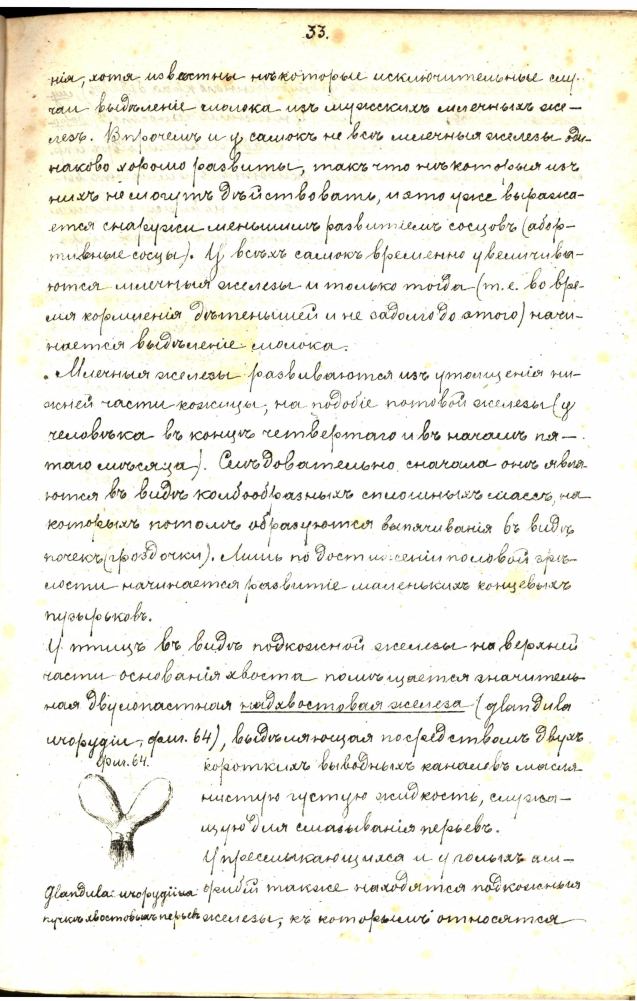 33.
нія, хотя извѣстны нѣкоторые исключительные слу-
чаи выдѣленіе молока изъ мужскихъ млечныхъ же-
лезъ. Впрочемъ и у самокъ не всѣ млечныя железы оди-
наково хорошо развиты, такъ что нѣкоторыя изъ
нихъ не могутъ дѣйствовать, и это уже выража-
ется снаружи меньшимъ развитіемъ сосцовъ (абор-
тивные сосцы). У всѣхъ самокъ временно увеличива-
ются млечныя железы и только тогда (т. е. во вре-
мя кормленія дѣтенышей и не задолго до этого) начи-
нается выдѣленіе молока.
Млечныя железы развиваются изъ утолщенія ни-
жней части кожицы, на подобіе потовой железы (у
человѣка въ концѣ четвертаго и въ началѣ пя-
таго мѣсяца). Слѣдовательно сначала онѣ явля-
ются въ видѣ колбообразныхъ сплошныхъ массъ, на
которыхъ потомъ образуются выпячиванія въ видѣ
почекъ (гроздочки). Лишь по достиженіи половой зрѣ-
лости начинается развитіе маленькихъ концевыхъ
пузырьковъ.
У птицъ въ видѣ подкожной железы на верхней
части основанія хвоста помѣщается значитель-
ная двулопастная надхвостовая железа (glandula
uropygii, фиг. 64), выдѣляющая посредствомъ двухъ
фиг. 64.
короткихъ выводныхъ каналевъ масля
нистую густую жидкость, служа-
щую для смазыванія перьевъ.
У пресмыкающихся и у голыхъ ам-
фибій также находятся подкожныя
железы, къ которымъ относятся
Glandula uropygii на
пучкѣ хвостовыхъ перьевъ